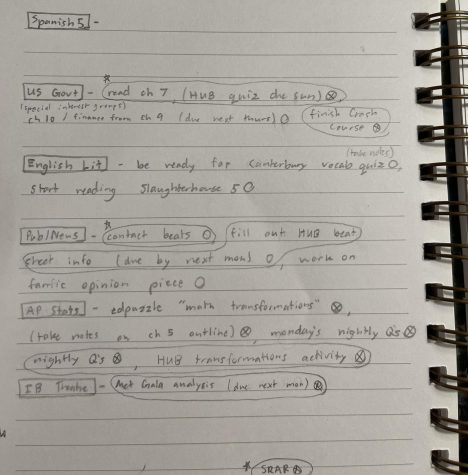 Spanish 5 -
*
US Govt - read ch 7, (HUB quiz due sun) ⊗,
(special interest groups)
ch 10 / finance from ch 9 (due next thurs) O finish Crash
Course ⊗
(take notes)
English Lit - be ready for Canterbury vocab quiz O,
start reading Slaughterhouse 5 O
*
Pub/News - contact beats O, fill out HUB beat
sheet info (due by next mon) O, work on
opinion piece O
AP Stats - edpuzzle "math transformations" ⊗,
(take notes on ch 5 outline) ⊗, monday's nightly Q's ⊗
nightly Q's ⊗, HUB transformations activity ⊗
IB Theatre - Met Gala analysis (due next mon) ⊗
* SRAR ⊗